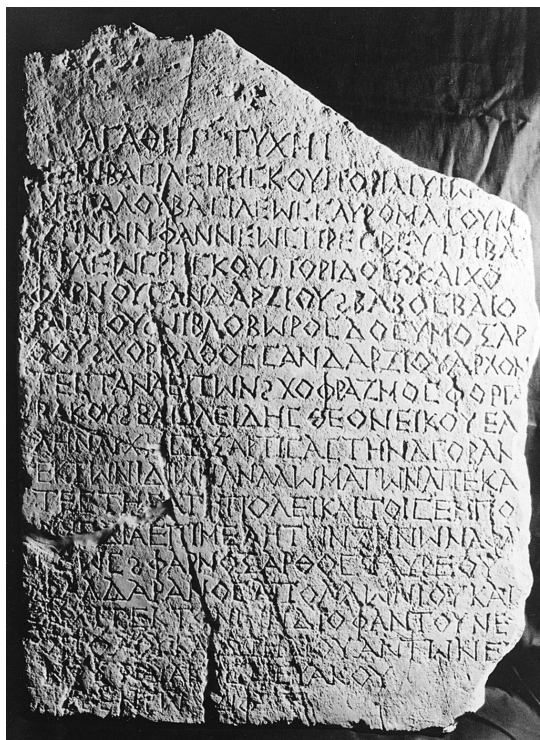 ΑΓΑΘΗΙ ΤΥΧΗΙ
ΕΠΙ ΒΑCΙΛΕΙ ΡΗCΚΟΥΠΟΡΙΔΙ ΥΙΩ
ΜΕΓΑΛΟΥ ΒΑCΙΛΕΩC CΑΥΡΟΜΑΤΟΥ
ΖΗΝΩΝ ΦΑΝΝΕΩC ΠΡΕCΒΕΥΤΗ ΒΑ
CΙΛΕΩC ΡΗCΚΟΥΠΟΡΙΔΟC ΚΑΙ ΧΟ
ΦΑΡΝΟΥ CΑΝΔΑΡΖΙΟΥ ΒΑΒΟC ΒΑΙΟ
ΡΑCΠΟΥ ΝΙΒΛΟΒΩΡΟC ΔΟCΥΜΟΞΑΡ
ΘΟΥ ΧΟΡΟΑΘΟC CΑΝΔΑΡΖΙΟΥ ΑΡΧΟΝ
ΤΕC ΤΑΝΑΕΙΤΩΝ ΧΟΦΡΑΖΜΟC ΦΟΡΓΑ
ΒΑΚΟΥ ΒΑCΙΛΕΙΔΗC ΘΕΟΝΕΙΚΟΥ ΕΛ
ΛΗΝΑΡΧΗC ΕΞΑΡΤΙCΑC ΤΗΝ ΑΓΟΡΑΝ
ΕΚ ΤΩΝ ΙΔΙΩΝ ΑΝΑΛΩΜΑΤΩΝ ΑΠΕΚΑ
ΤΕCΤΗCΑ ΤΗ ΠΟΛΕΙ ΚΑΙ ΤΟΙC ΕΝΠΟ
ΔΙΑ ΕΠΙΜΕΛΗΤΩΝ
ΦΑΡΝΟΞΑΡΘΟC ΤΑΥΡΕΟΥ
ΦΑΛΔΑΡΑΝΟC ΑΠΟΛΛΩΝΙΟΥ ΚΑΙ
ΑΡΧΙΤΕΚΤΟΝΩΝ ΔΙΟΦΑΝΤΟΥ ΝΕ
ΚΑΙ ΑΝΤΩΝΕ
ΝΑΥΑΚΟΥ